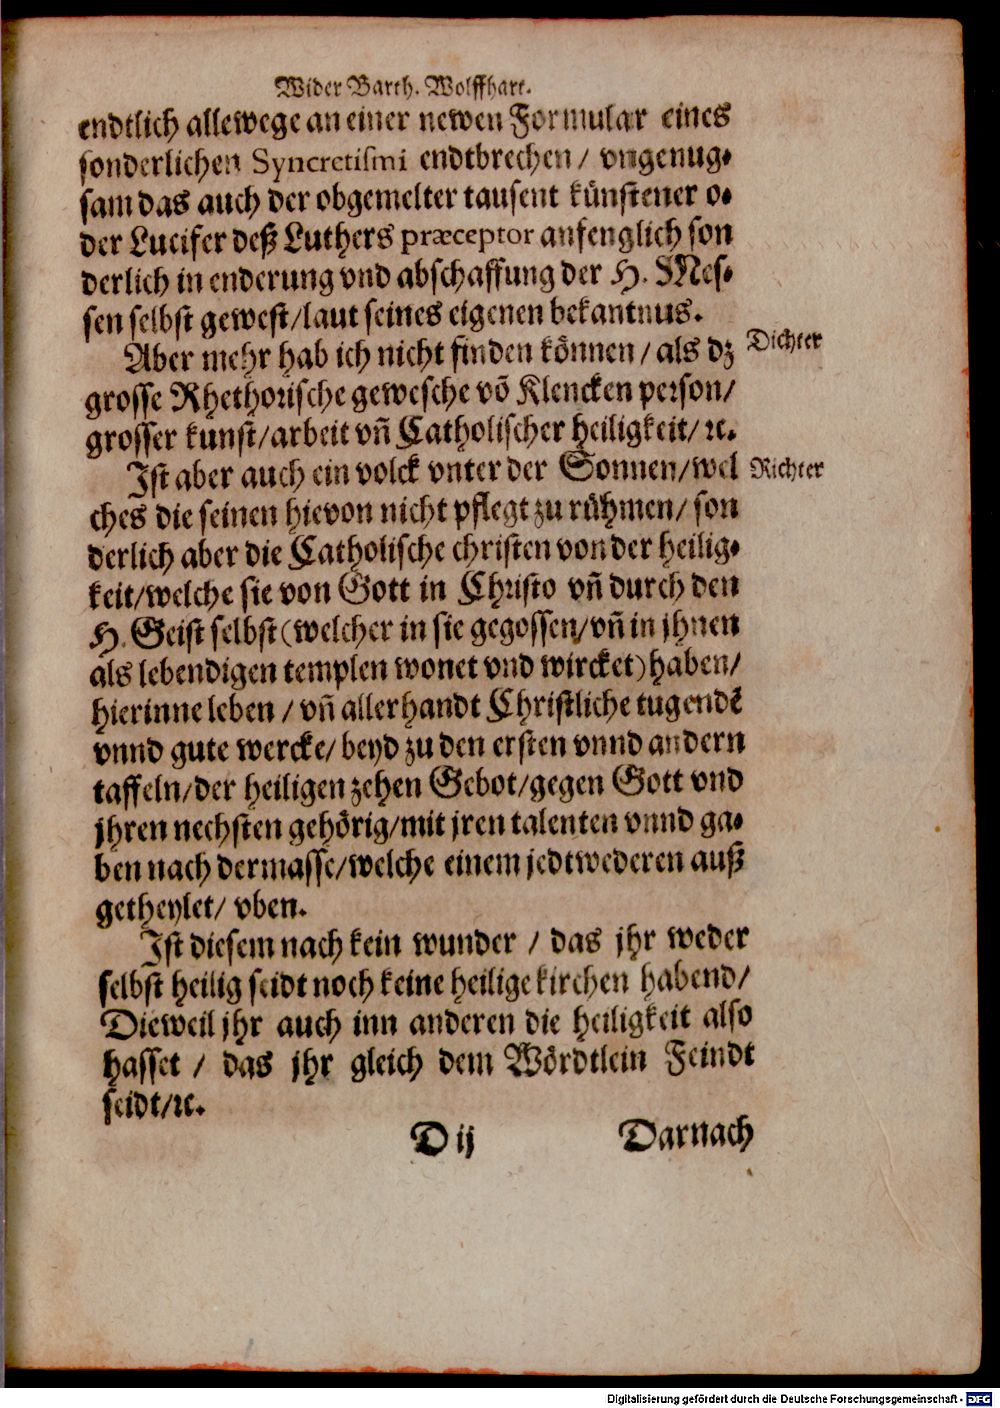 Wider Barth. Wolffhart.
endtlich allewege an einer newen Formular eines
sonderlichen Syncretismi endtbrechen / vngenug⸗
sam das auch der obgemelter tausent künstener o⸗
der Lucifer deß Luthers præceptor anfenglich son
derlich in enderung vnd abschaffung der H. Mes⸗
sen selbst gewest/laut seines eigenen bekantnus.
Aber mehr hab ich nicht finden können / als dz
Dichter
grosse Rhethorische gewesche vō Klencken person/
grosser kunst/arbeit vñ Catholischer heiligkeit/ ꝛc.
Ist aber auch ein volck vnter der Sonnen/wel
Richter
ches die seinen hievon nicht pflegt zu rühmen/ son
derlich aber die Catholische christen von der heilig⸗
keit/welche sie von Gott in Christo vñ durch den
H. Geist selbst (welcher in sie gegossen/vñ in jhnen
als lebendigen templen wonet vnd wircket) haben/
hierinne leben / vñ allerhandt Christliche tugendē
vnnd gute wercke/ beyd zu den ersten vnnd andern
taffeln/der heiligen zehen Gebot/gegen Gott vnd
jhren nechsten gehörig/mit jren talenten vnnd ga⸗
ben nach der masse/welche einem jedtwederen auß
getheylet/ vben.
Ist diesem nach kein wunder / das jhr weder
selbst heilig seidt noch keine heilige kirchen habend/
Dieweil jhr auch inn anderen die heiligkeit also
hasset / das jhr gleich dem Wördtlein Feindt
seidt/ꝛc.
D ij Darnach
Digitalisierung gefördert durch die Deutsche Forschungsgemeinschaft - DFG